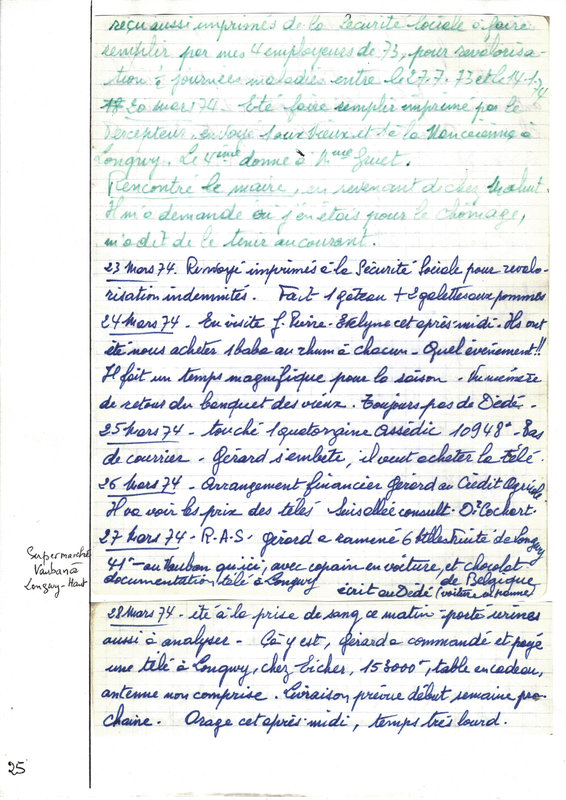 reçu aussi imprimés de la Sécurité Sociale à faire
remplir par mes 4 employeurs de 73, pour revalorisa-
tion à journées maladies entre le 27.7.73 et le 14.1.74
20 mars 74. Eté faire remplir imprimé par le
Percepteur, envoyé 1 aux vieux et 1 à la Nanceienne à
Longwy. Le 4ème donné à Mme
Rencontré le maire, en revenant de chez
Il m'a demandé où j'en étais pour le chômage,
m'a dit de le tenir au courant.
23 Mars 74. Renvoyé imprimés à la Sécurité Sociale pour revalo-
risation indemnités. Fait 1 gâteau + 2 galettes aux pommes
24 Mars 74 - En visite J. Pierre - Evelyne cet après-midi. Ils ont
été nous acheter 1 baba au rhum à chacun - Quel événement!!
Il fait un temps magnifique pour la saison - Vu mémère
de retour du banquet des vieux. Toujours pas de Dédé -
25 Mars 74 - touché 1 quatorzaine Assédic 10948F - Pas
de courrier - Gérard s'embête, il veut acheter la télé
26 Mars 74 - Arrangement financier Gérard au Crédit Agricole
Il va voir les prix des télés Suis allée consult. Dr Cochart.
27 Mars 74 - R.A.S - Gérard a ramené 6 btlles de Longwy
41F - au Vauban qu'ici, avec copain en voiture, et chocolat
documentation télé à Longwy de Belgique
écrit au Dédé (voiture)
Supermarché
Vauban à
Longwy-Haut
28 Mars 74 - été à la prise de sang ce matin - porté urines
aussi à analyser - Ça y est, Gérard a commandé et payé
une télé à Longwy, chez Eicher, 153000F, table en cadeau,
antenne non comprise. Livraison prévue début semaine pro-
chaine. Orage cet après-midi, temps très lourd.
25